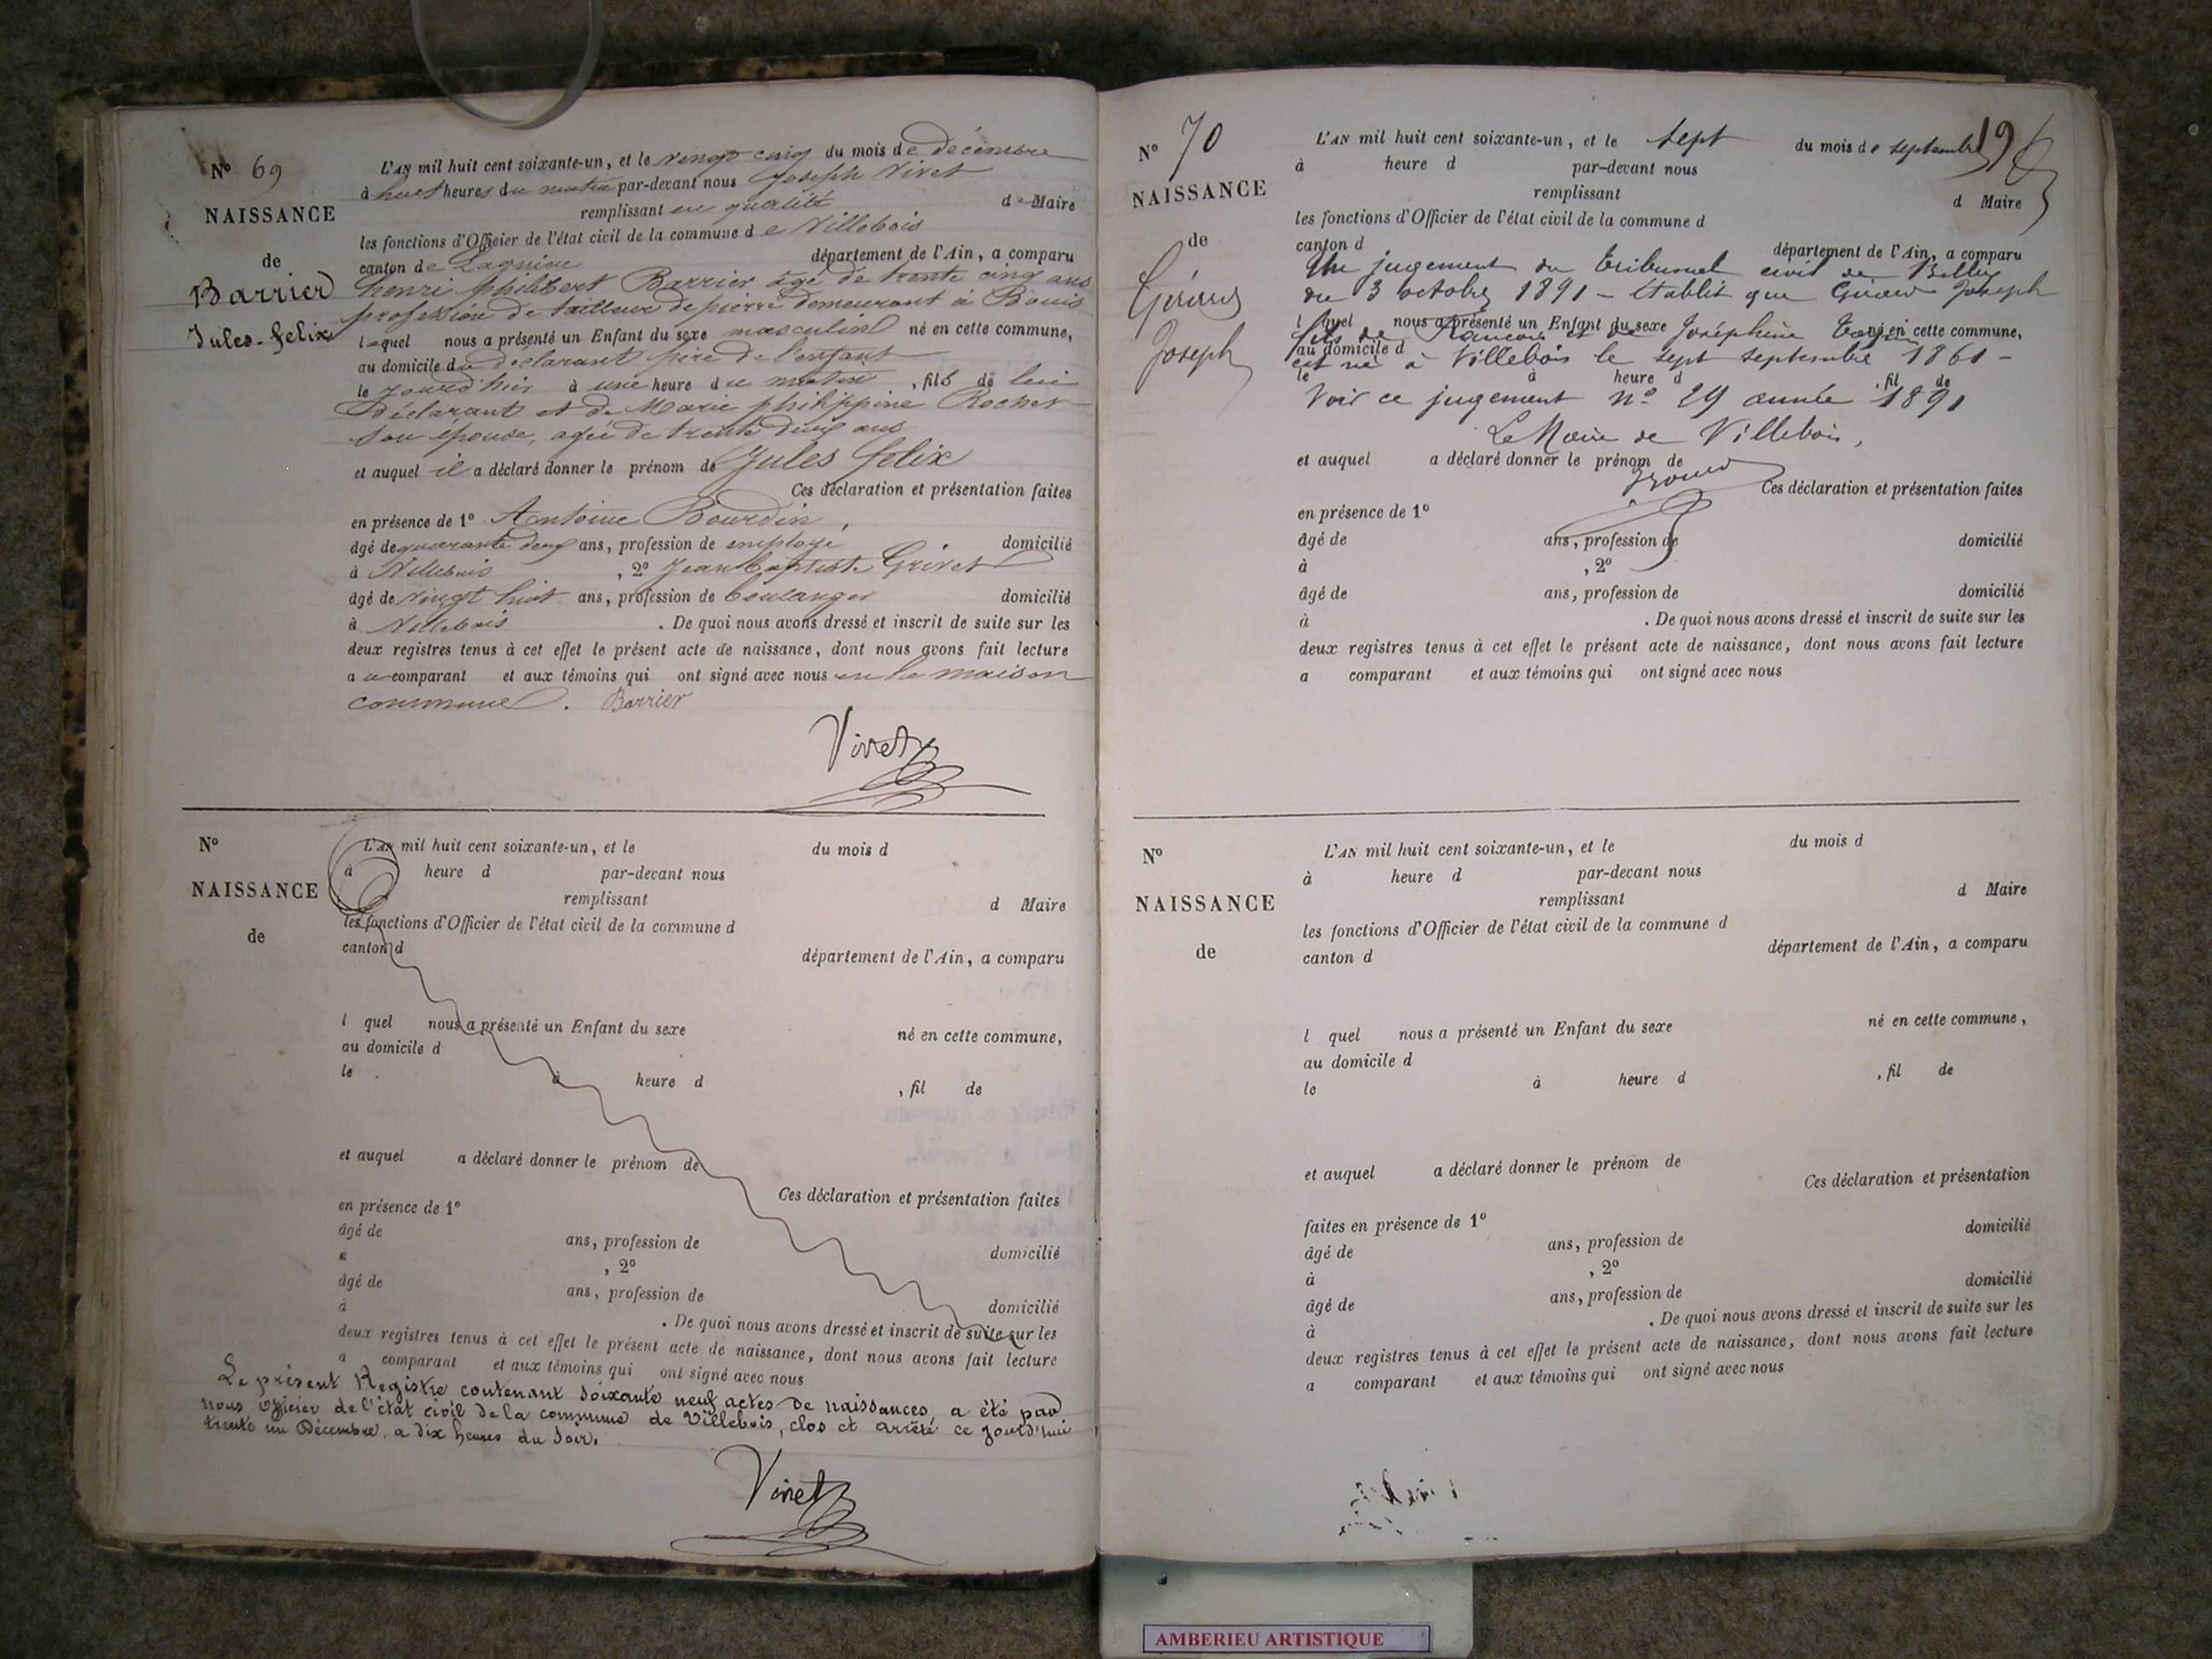 N° 69
NAISSANCE
de
Barrier
Jules-felix
L'AN mil huit cent soixante-un, et le vingt cinq du mois de décembre
à huit heures du matin par-devant nous Joseph Vivet
remplissant en qualité de Maire
les fonctions d'Officier de l'état civil de la commune de Villebois
canton de Lagnieu département de l'Ain, a comparu
henri philibert Barrier âgé de trente cinq ans
profession de tailleur de pierre demeurant à Bouis
lequel nous a présenté un Enfant du sexe masculin né en cette commune,
au domicile du déclarant père de l'enfant
le jourd'hui à une heure du matin, fils de lui
déclarant et de Marie philippine Rochet
son épouse, agée de trente deux ans
et auquel il a déclaré donner le prénom de Jules felix
Ces déclaration et présentation faites
en présence de 1° Antoine Bourdin,
âgé de quarante deux ans, profession de employé domicilié
à Villebois, 2° Jean Baptiste Grivet
âgé de vingt huit ans, profession de boulanger domicilié
à Villebois. De quoi nous avons dressé et inscrit de suite sur les
deux registres tenus à cet effet le présent acte de naissance, dont nous avons fait lecture
au comparant et aux témoins qui ont signé avec nous en la maison
commune. Barrier
Vivet
N°
NAISSANCE
de
L'AN mil huit cent soixante-un, et le du mois d
à heure d par-devant nous
remplissant d Maire
les fonctions d'Officier de l'état civil de la commune d
canton d département de l'Ain, a comparu
l quel nous a présenté un Enfant du sexe né en cette commune,
au domicile d
le à heure d , fil de
et auquel a déclaré donner le prénom de
Ces déclaration et présentation faites
en présence de 1°
âgé de ans, profession de domicilié
à , 2°
âgé de ans, profession de domicilié
à . De quoi nous avons dressé et inscrit de suite sur les
deux registres tenus à cet effet le présent acte de naissance, dont nous avons fait lecture
a comparant et aux témoins qui ont signé avec nous
Le présent Registre contenant soixante neuf actes de naissances, a été par
nous Officier de l'état civil de la commune de Villebois, clos et arrêté ce jourd'hui
trente un Décembre, a dix heures du soir.
Vivet
19
N° 70
NAISSANCE
de
Girard
Joseph
L'AN mil huit cent soixante-un, et le sept du mois de septembre
à heure d par-devant nous
remplissant d Maire
les fonctions d'Officier de l'état civil de la commune d
canton d département de l'Ain, a comparu
Un jugement du tribunal civil de Belley
du 3 octobre 1891 - établit que Girard Joseph
l quel nous a présenté un Enfant du sexe né en cette commune,
fils de François et de Joséphine
au domicile d
est né à Villebois le sept septembre 1861 -
le à heure d , fil de
Voir ce jugement n° 29 année 1891
Le Maire de Villebois,
et auquel a déclaré donner le prénom de
Ces déclaration et présentation faites
en présence de 1°
âgé de ans, profession de domicilié
à , 2°
âgé de ans, profession de domicilié
à . De quoi nous avons dressé et inscrit de suite sur les
deux registres tenus à cet effet le présent acte de naissance, dont nous avons fait lecture
a comparant et aux témoins qui ont signé avec nous
N°
NAISSANCE
de
L'AN mil huit cent soixante-un, et le du mois d
à heure d par-devant nous
remplissant d Maire
les fonctions d'Officier de l'état civil de la commune d
canton d département de l'Ain, a comparu
l quel nous a présenté un Enfant du sexe né en cette commune,
au domicile d
le à heure d , fil de
et auquel a déclaré donner le prénom de
Ces déclaration et présentation
faites en présence de 1° domicilié
âgé de ans, profession de
à , 2° domicilié
âgé de ans, profession de
à . De quoi nous avons dressé et inscrit de suite sur les
deux registres tenus à cet effet le présent acte de naissance, dont nous avons fait lecture
a comparant et aux témoins qui ont signé avec nous
AMBERIEU ARTISTIQUE